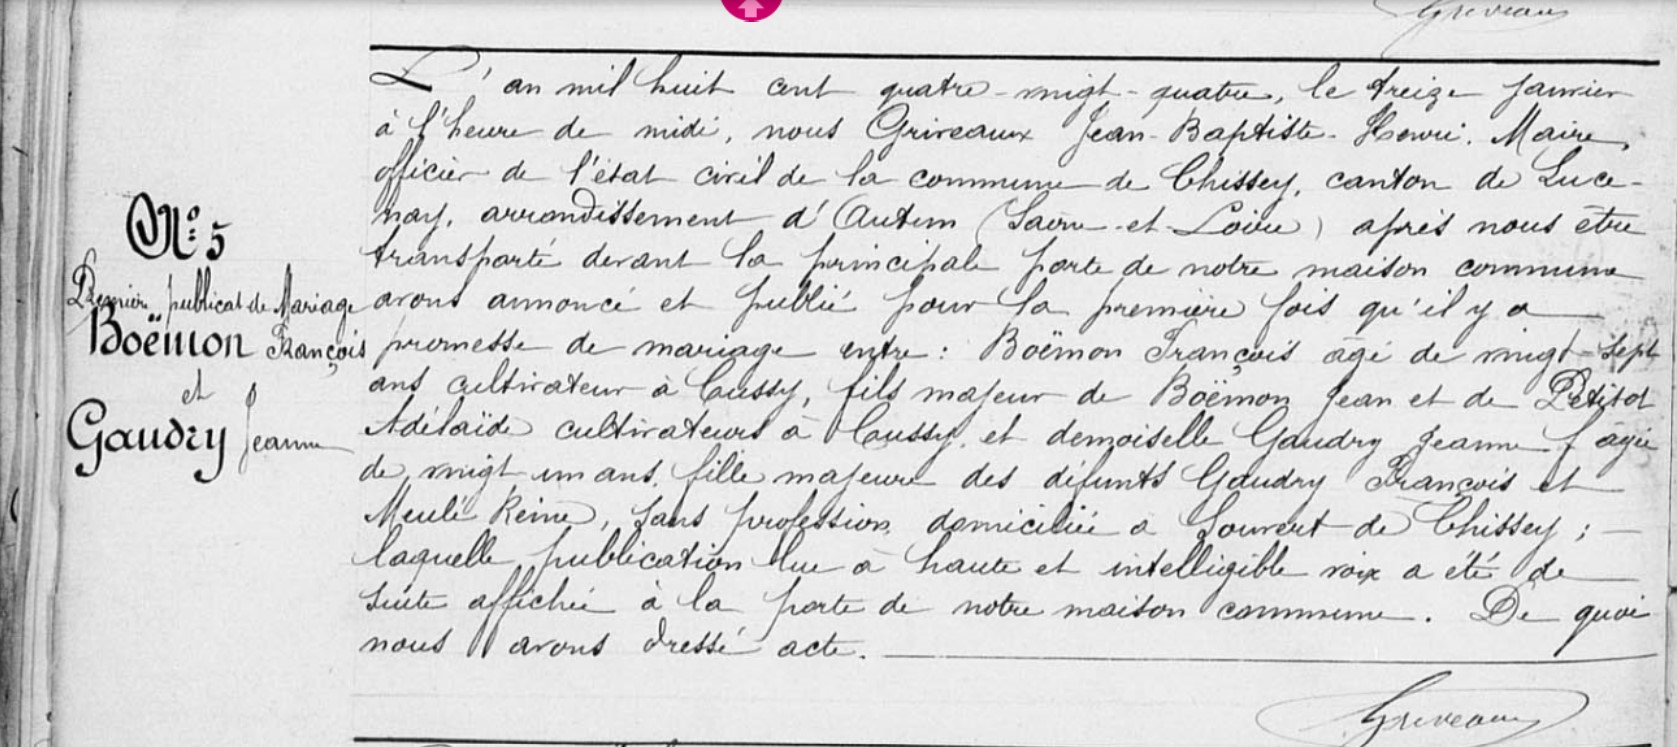 Griveaux
L'an mil huit cent quatre-vingt-quatre, le treize Janvier
à l'heure de midi, nous Griveaux Jean-Baptiste-Henri, Maire,
officier de l'état civil de la commune de Chissey, canton de Luce-
nay, arrondissement d'Autun (Saône-et-Loire) après nous être
transporté devant la principale porte de notre maison commune
avons annoncé et publié pour la première fois qu'il y a
promesse de mariage entre : Boëmon François âgé de vingt-sept
ans cultivateur à Cussy, fils majeur de Boëmon Jean et de Petitot
Adélaïde cultivateurs à Cussy, et demoiselle Gaudry Jeanne, âgée
de vingt un ans, fille majeure des défunts Gaudry François et
Meulé Reine, sans profession, domiciliée à Souvert de Chissey ;
laquelle publication lue à haute et intelligible voix a été de
suite affichée à la porte de notre maison commune. De quoi
nous avons dressé acte.
Griveaux
N° 5
Première publicat de Mariage
Boëmon François
et
Gaudry Jeanne